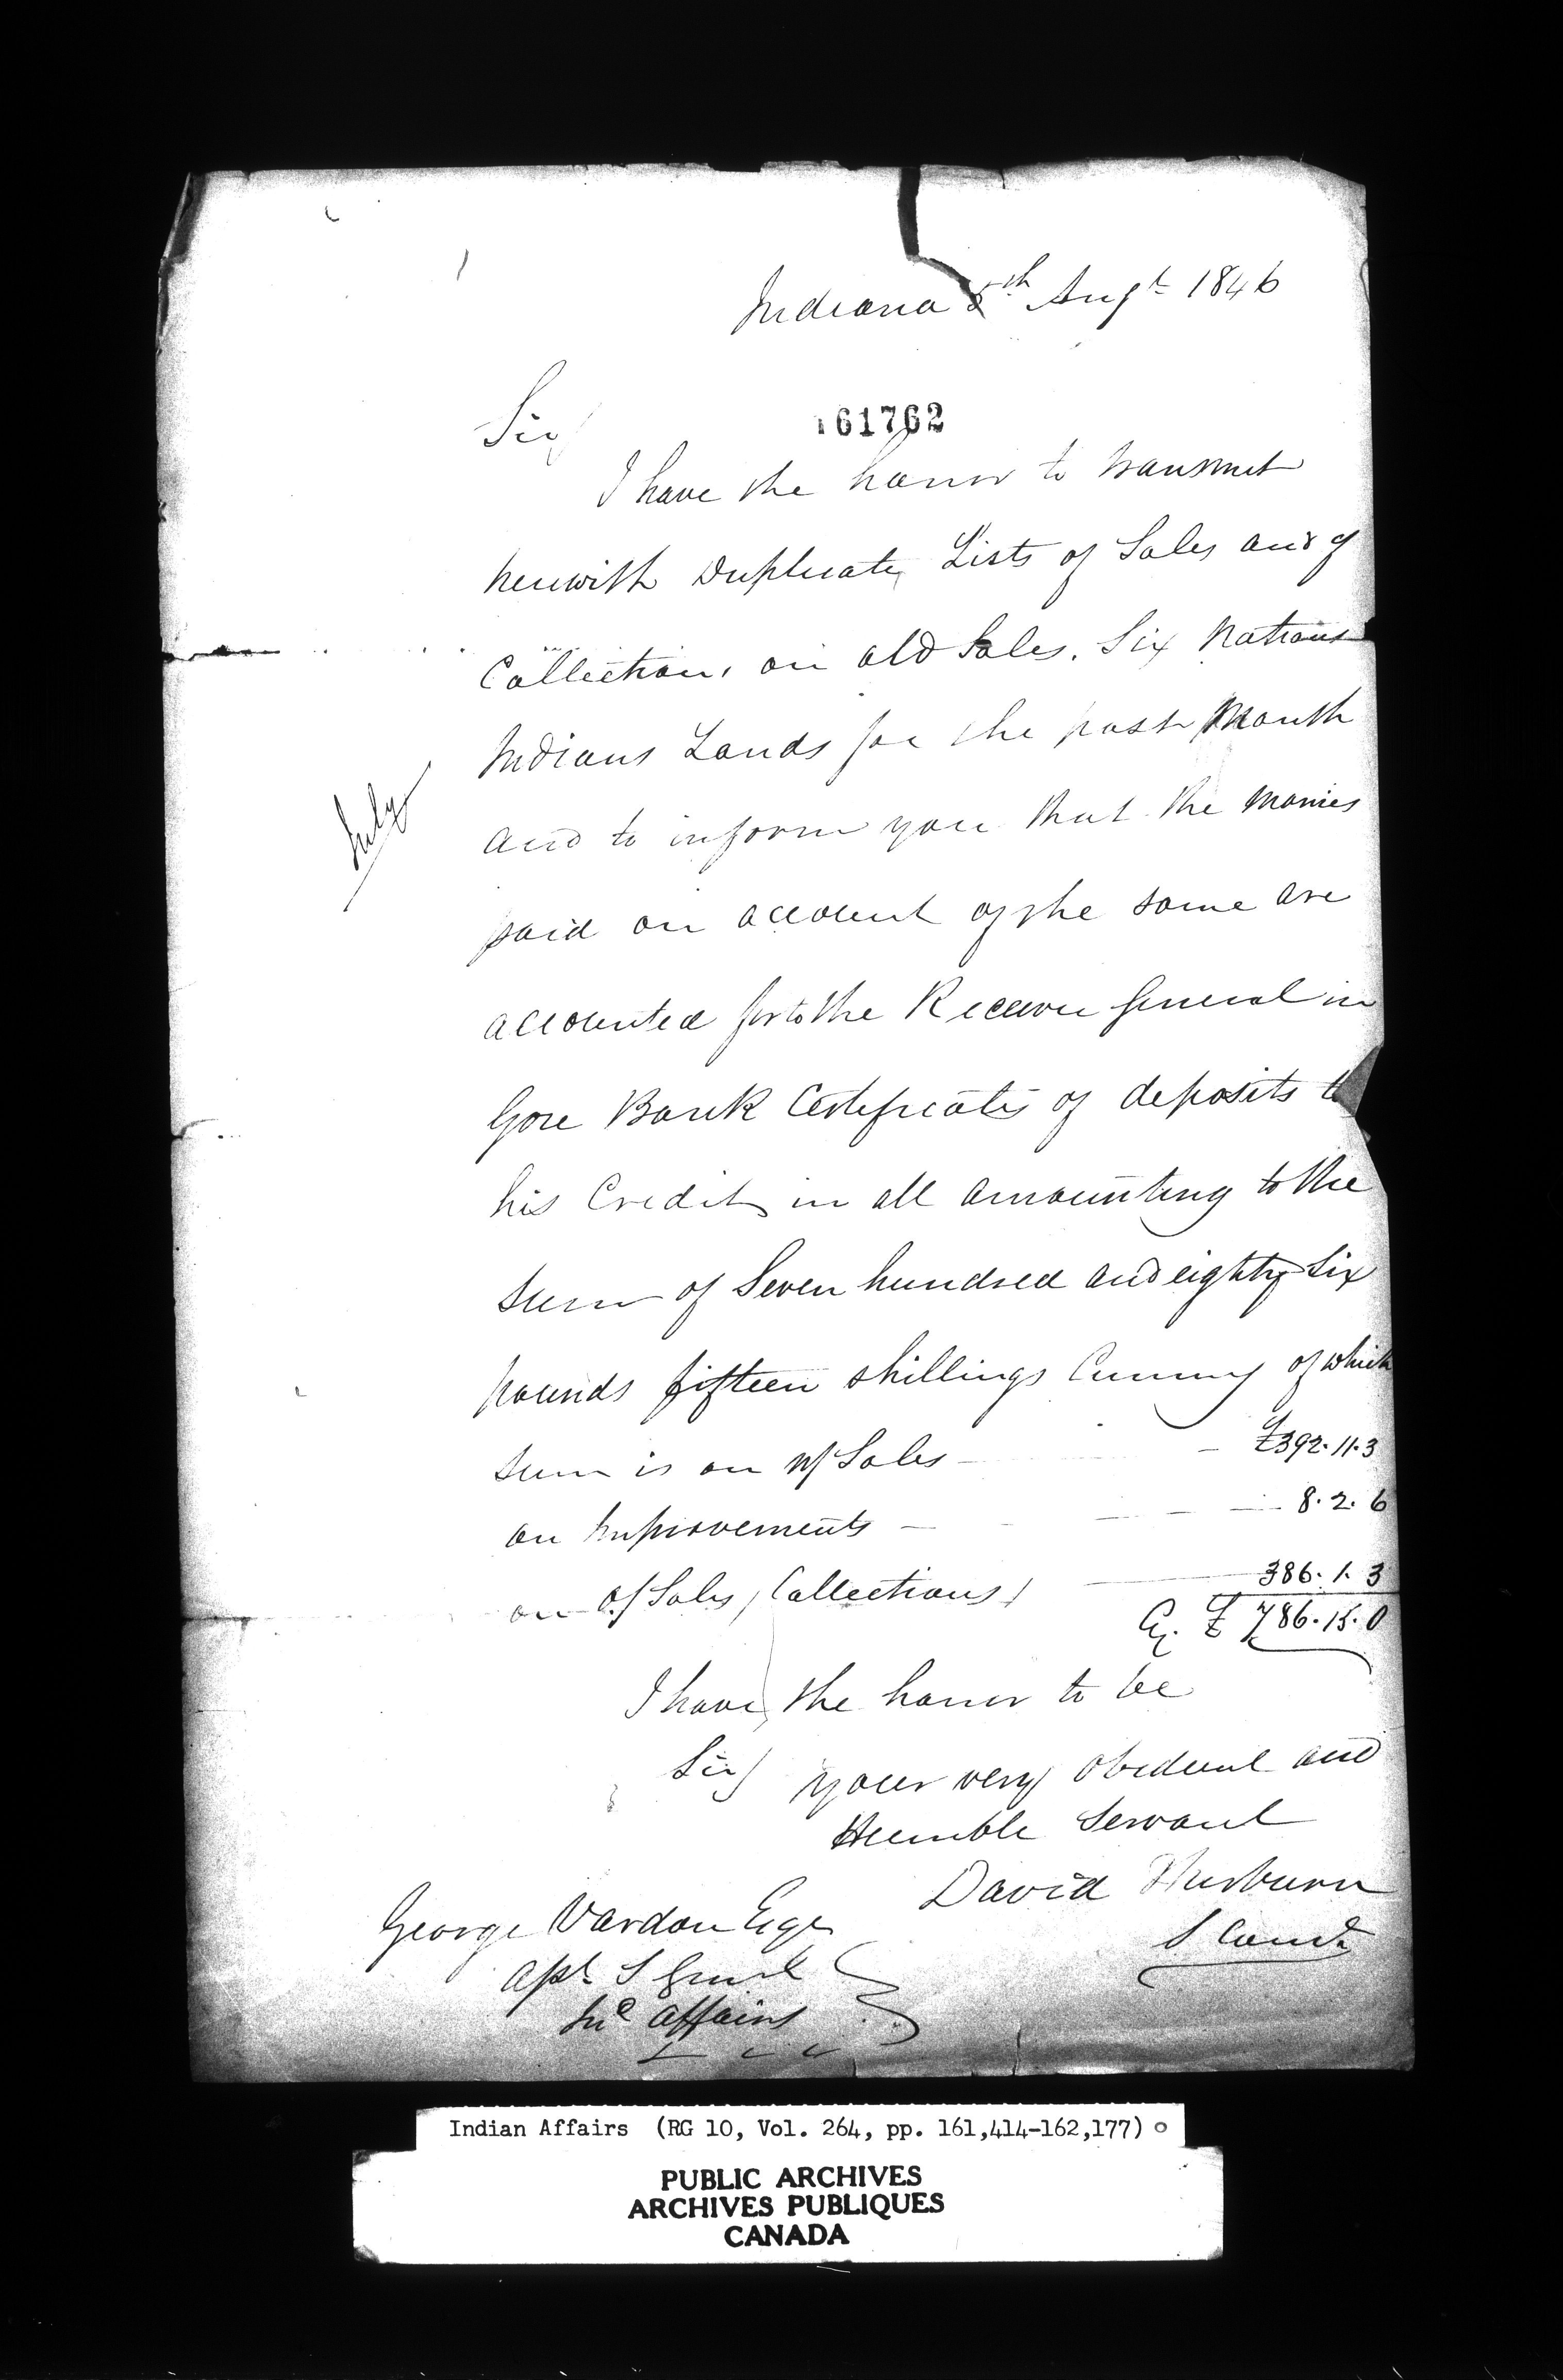 Indiana 5th Augt 1846
161762
Sir/
I have the honor to transmit
herewith Duplicate Lists of Sales and of
Collections on old Sales. Six Nations
Indians Lands for the past Month
July
and to inform you that the monies
paid on account of the same are
accounted for to the Receiver General in
Gore Bank Certificates of deposits to
his Credit in all amounting to the
sum of Seven hundred and eighty Six
pounds fifteen shillings Currency of which
sum is on N/ Sales £392.11.3
on Improvements 8.2.6
on O/ Sales / Collections / 386.1.3
Cy. £ 786.15.0
I have the honor to be
Sir/ your very obedient and
Humble Servant
David Thorburn
S Comr
George Vardon Esqr
Ind Affairs
Indian Affairs (RG 10, Vol. 264, pp. 161,414-162,177)
PUBLIC ARCHIVES
ARCHIVES PUBLIQUES
CANADA